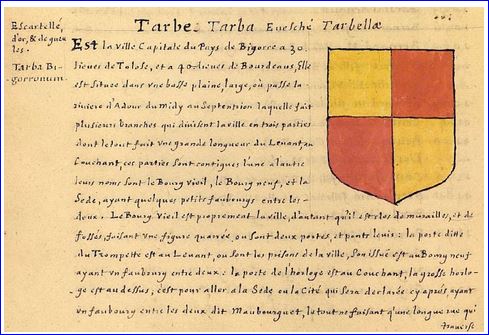 Tarbe: Tarba Euesché Tarbellæ
Escartellé,
d'or, & de gueu
les.
Tarba Bi-
gorronum.
Est la ville Capitale du Pays de Bigorre a 30.
lieues de Tolose, et a 40. lieues de Bourdeaus, Elle
est située dans vne basse plaine, large, où passe la
riuiere d'Adour du Midy au Septentrion laquelle fait
plusieurs branches qui diuisent la ville en trois parties
dont le tout fait vne grande longueur du Leuant au
Couchant, ces parties sont contigues l'une a l'autre
leurs noms sont le Bourg Vieil, le Bourg neuf, et la
Sede, ayant quelques petits faubourgs entre les-
deux. Le Bourg Vieil est proprement la ville, d'autant qu'il est clos de murailles, et de
fossés, faisant vne figure quarrée, ou sont deux portes, et ponts leuis: la porte ditte
du Trompette est au Leuant, ou sont les prisons de la ville, son issüe est au Bourg neuf
ayant vn faubourg entre deux: la porte de l'horloge est au Couchant, la grosse horlo-
ge est au dessus, c'est pour aller a la Sede ou la Cité qui sera declarée cy aprés, ayant
vn faubourg entre les deux dit Maubourguet, le tout ne faisant q'une longue rue qui
trauerse